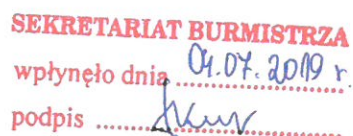 SEKRETARIAT BURMISTRZA
wpłynęło dnia 04.07.2019 r.
podpis